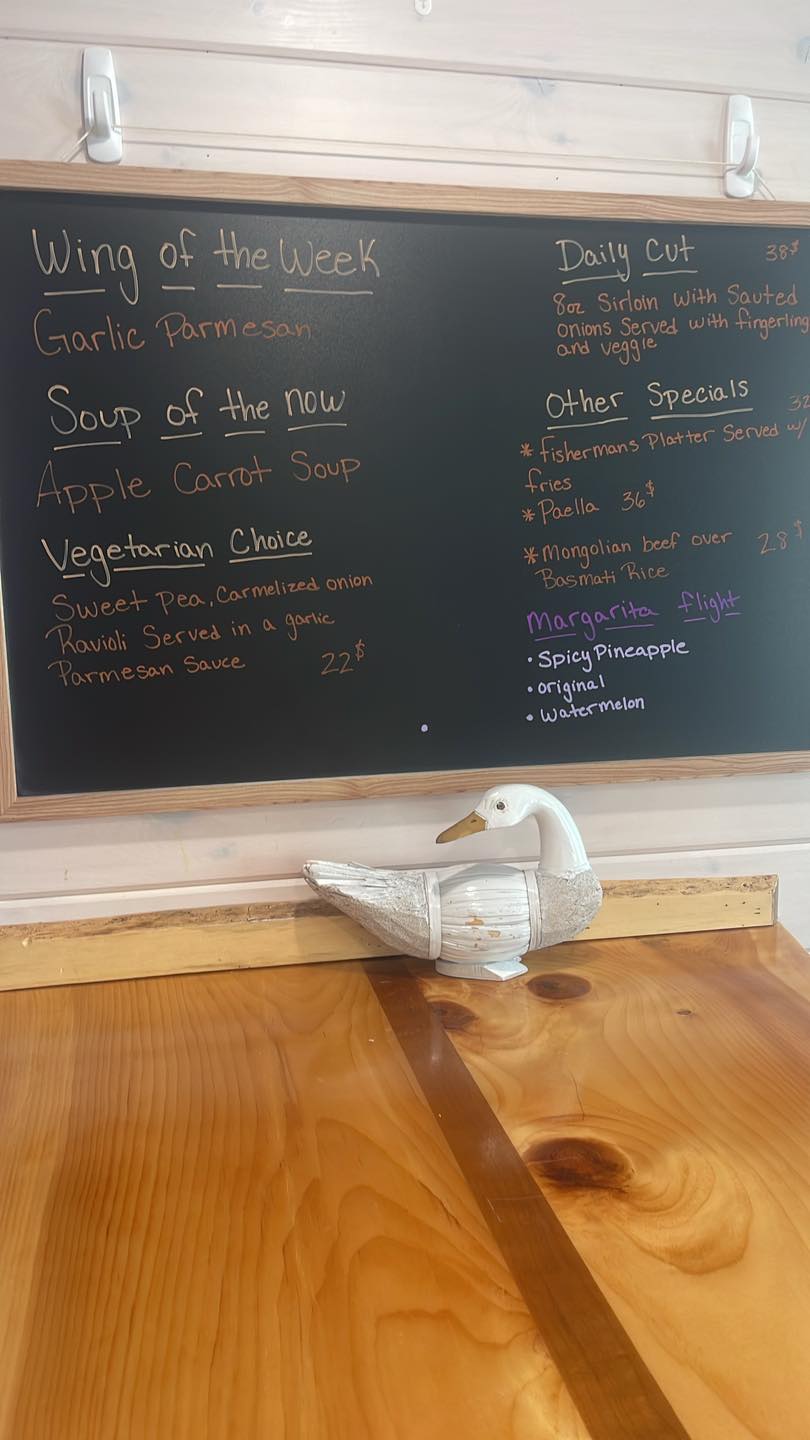 Wing of the Week
Garlic Parmesan
Soup of the now
Apple Carrot Soup
Vegetarian Choice
Sweet Pea, Carmelized onion
Ravioli Served in a garlic
Parmesan Sauce 22$
Daily Cut 38$
8oz Sirloin with Sauted
onions Served with fingerling
and veggie
Other Specials 32
* Fishermans Platter Served w/
fries
* Paella 36$
* Mongolian beef over 28$
Basmati Rice
Margarita flight
• Spicy Pineapple
• original
• watermelon